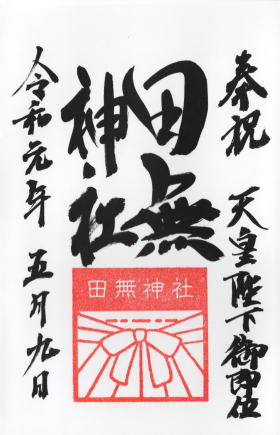 奉祝 天皇陛下御即位
田無
神社
田無神社
令和元年 五月九日